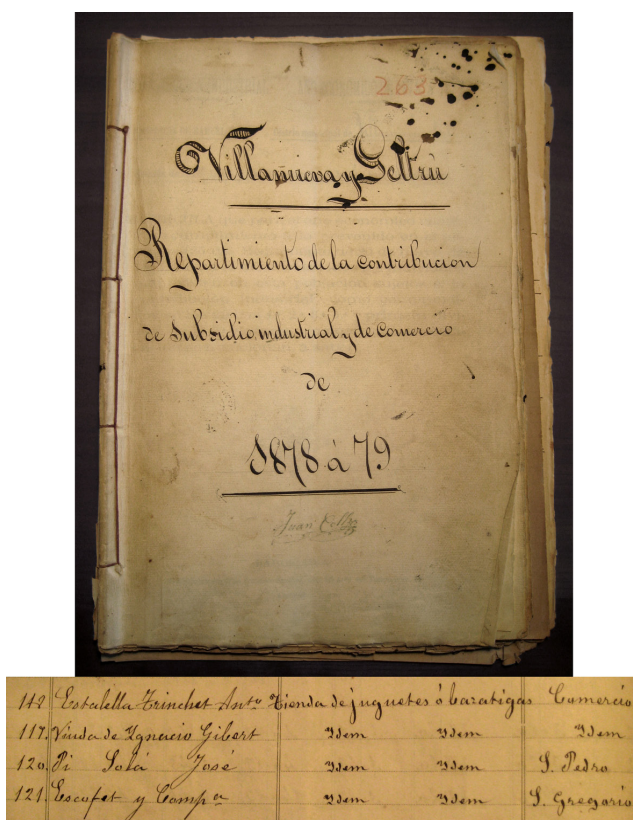 263
Villanueva y Geltrú
Repartimiento de la contribucion
de Subsidio industrial y de Comercio
de
1878 á 79
Juan
112 Estalella Trinchet Anto Tienda de juguetes ó baratigas Comercio
117. Viuda de Ygnacio Gibert Ydem Ydem Ydem
120. Pi Solá José Ydem Ydem S. Pedro
121. Escofet y Compa Ydem Ydem S. Gregorio